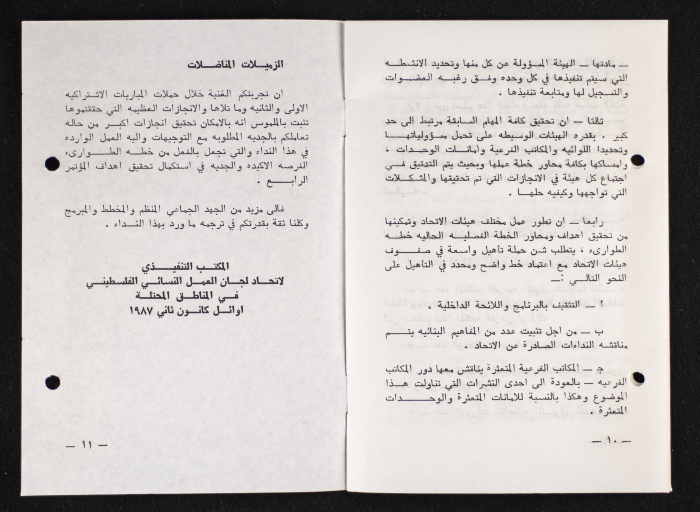 ـ مادتها ـ الهيئة المسؤولة عن كل منها وتحديد الانشطه
التي سيتم تنفيذها في كل وحده وفق رغبه العضوات
والتسجيل لها ومتابعة تنفيذها .
ثالثا ـ ان تحقيق كافة المهام السابقة مرتبط الى حد
كبير . بقدره الهيئات الوسيطه على تحمل مسؤولياتها
وتحديدا اللوائيه والمكاتب الفرعية وامانات الوحدات ،
وامساكها بكافة محاور خطة عملها وبحيث يتم التدقيق في
اجتماع كل هيئة في الانجازات التي تم تحقيقها والمشكلات
التي تواجهها وكيفيه حلهــا .
رابعـا ـ ان تطور عمل مختلف هيئات الاتحاد وتمكينها
من تحقيق اهداف ومحاور الخطة الفصليـه الحاليه خطـه
الطوارىء ، يتطلب شـن حملة تاهيل واسعة في صفـوف
هيئات الاتحاد مع اعتماد خط واضح ومحدد في التاهيل على
النحو التالـي :ـ
ا ـ التثقيف بالبرنامج واللائحة الداخلية .
ب ـ من اجل تثبيت عدد من المفاهيم البنائيه يتـم
مناقشه النداءات الصادرة عن الاتحـاد .
جـ ـ المكاتب الفرعية المتعثرة يناقش معها دور المكاتب
الفرعيه ـ بالعودة الى احدى النشرات التي تناولت هـذا
الموضوع وهكذا بالنسبة للامانات المتعثرة والوحـدات
المتعثرة .
ـ ١٠ ـ
الزميـلات المناضـلات
ان تجربتكم الغنية خلال حملات المباريات الاشتراكيه
الاولى والثانيه وما تلاها والانجازات العظيمه التي حققتموها
تثبت بالملموس انه بالامكان تحقيق انجازات اكبـر من حاله
تعاملكم بالجديه المطلوبه مع التوجيهات واليه العمل الوارده
في هذا النداء والتي تجعل بالفعل من خطـه الطـوارىء
الفرصه الاكيده والجديه في استكمال تحقيق اهداف المؤتمر
الرابـع .
فالى مزيد من الجهد الجماعي المنظم والمخطط والمبرمج
وكلنا ثقة بقدرتكم في ترجمه ما ورد بهذا النـداء .
المكتب التنفيـذي
لاتحـاد لجـان العمـل النسـائي الفلسطيني
فـي المناطـق المحتلـة
اوائـل كانـون ثاني ١٩٨٧
ـ ١١ ـ